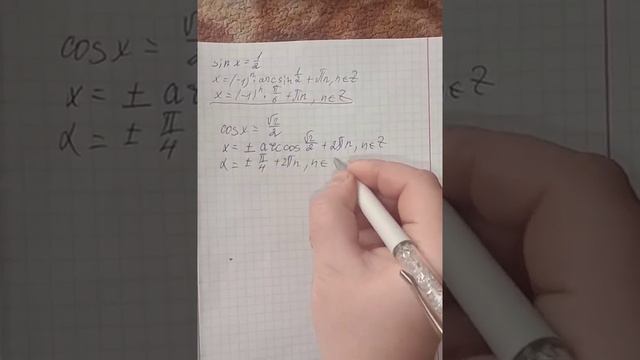 sin x = 1/2
x = (-1)ⁿ · arcsin 1/2 + πn, n∈Z
x = (-1)ⁿ · π/6 + πn, n∈Z
cos x = √2/2
x = ± arccos √2/2 + 2πn, n∈Z
x = ± π/4 + 2πn, n∈